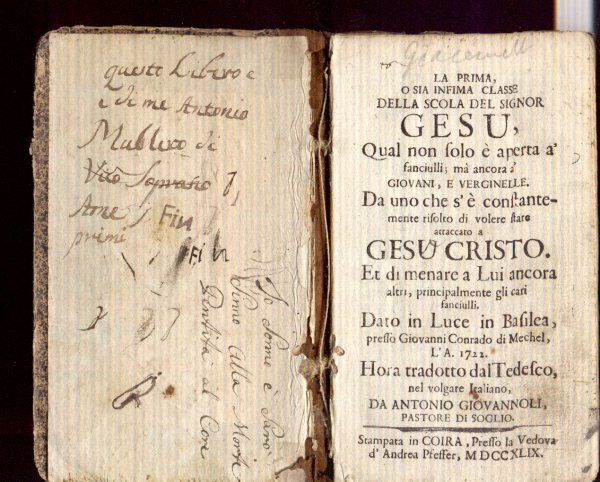 questo Libero e
e di me Antonio
Mublero di
Vito Soprano
Ame Fin
primi
Fin
Io Sonno è Saro
Sinno Alla Morte
Gentila al Core
LA PRIMA,
O SIA INFIMA CLASSE
DELLA SCOLA DEL SIGNOR
GESU,
Qual non solo è aperta a'
fanciulli; mà ancora a'
GIOVANI, E VERGINELLE.
Da uno che s'è constante-
mente risolto di volere stare
attaccato a
GESU CRISTO.
Et di menare a Lui ancora
altri, principalmente gli cari
fanciulli.
Dato in Luce in Basilea,
presso Giovanni Conrado di Mechel,
L'A. 1722.
Hora tradotto dal Tedesco,
nel volgare Italiano,
DA ANTONIO GIOVANNOLI,
PASTORE DI SOGLIO.
Stampata in COIRA, Presso la Vedova
d' Andrea Pfeffer, MDCCXLIX.